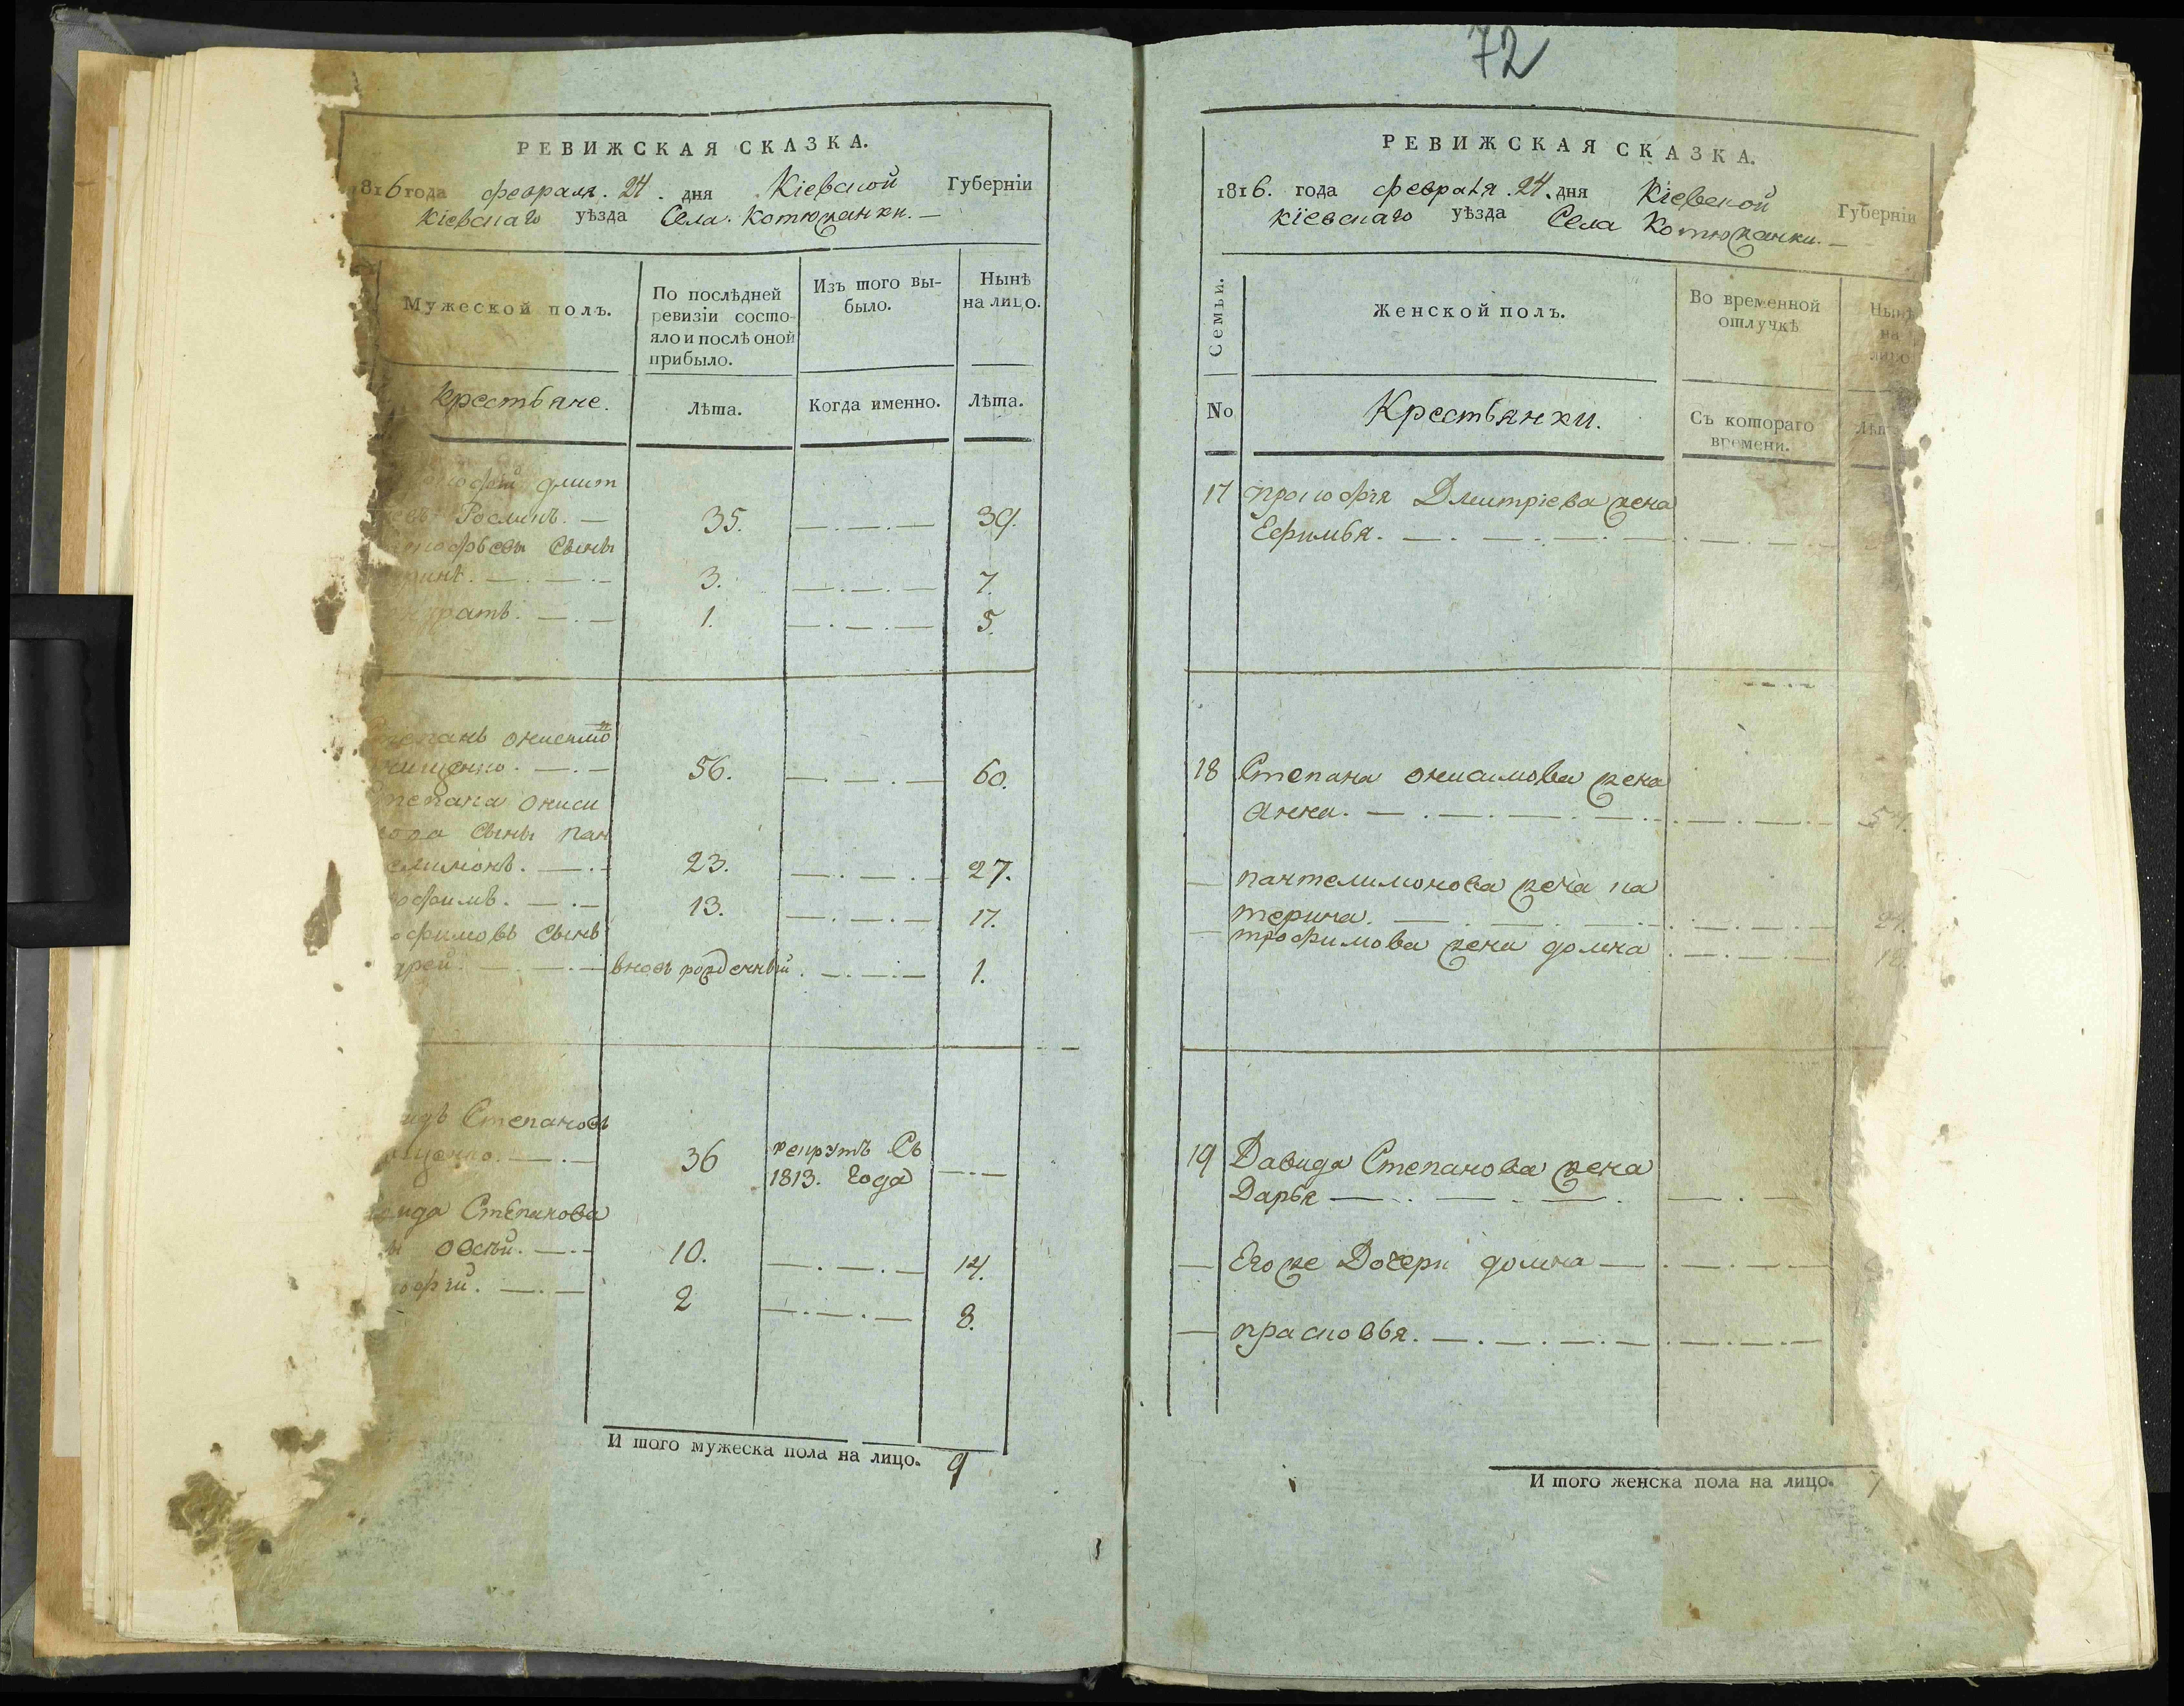 72
РЕВИЖСКАЯ СКАЗКА.
1816 года февраля. 24. дня Кіевской Губерніи
Кіевскаго уѣзда Села Котюжанки. —
Мужеской полъ.
По послѣдней ревизіи состо-
яло и послѣ оной
прибыло.
Изъ того вы-
было.
Нынѣ
на лицо.
Крестьяне.
Лѣта.
Когда именно.
Лѣта.
дмит
35. 39.
Сыны
3. 7.
1. 5.
Степанъ Онисимо
56. 60.
Степана Ониси
мова Сыны Пан
телимонъ. 23. 27.
трофимъ. 13. 17.
трофимовъ Сынъ
вновь рожденный. 1.
Степановъ
36 рекрутъ Съ
1813. Года
Степанова
Овсѣй. 10. 14.
2 8.
И того мужеска пола на лицо. 9
РЕВИЖСКАЯ СКАЗКА.
1816. года февраля. 24. дня Кіевской Губерніи
Кіевскаго уѣзда Села Котюжанки. —
Семьи.
Женской полъ.
Во временной
отлучкѣ
Нынѣ
на
лицо
No
Крестьянки.
Съ котораго
времени.
17 прокофія Дмитріева жена
Ефимья.
18 Степана Онисимова жена
Анна.
— пантелимонова жена ка
терина.
— трофимова жена домна
19 Давида Степанова жена
Дарья
— Его же Дочери домна
— прасковья.
И того женска пола на лицо. 7